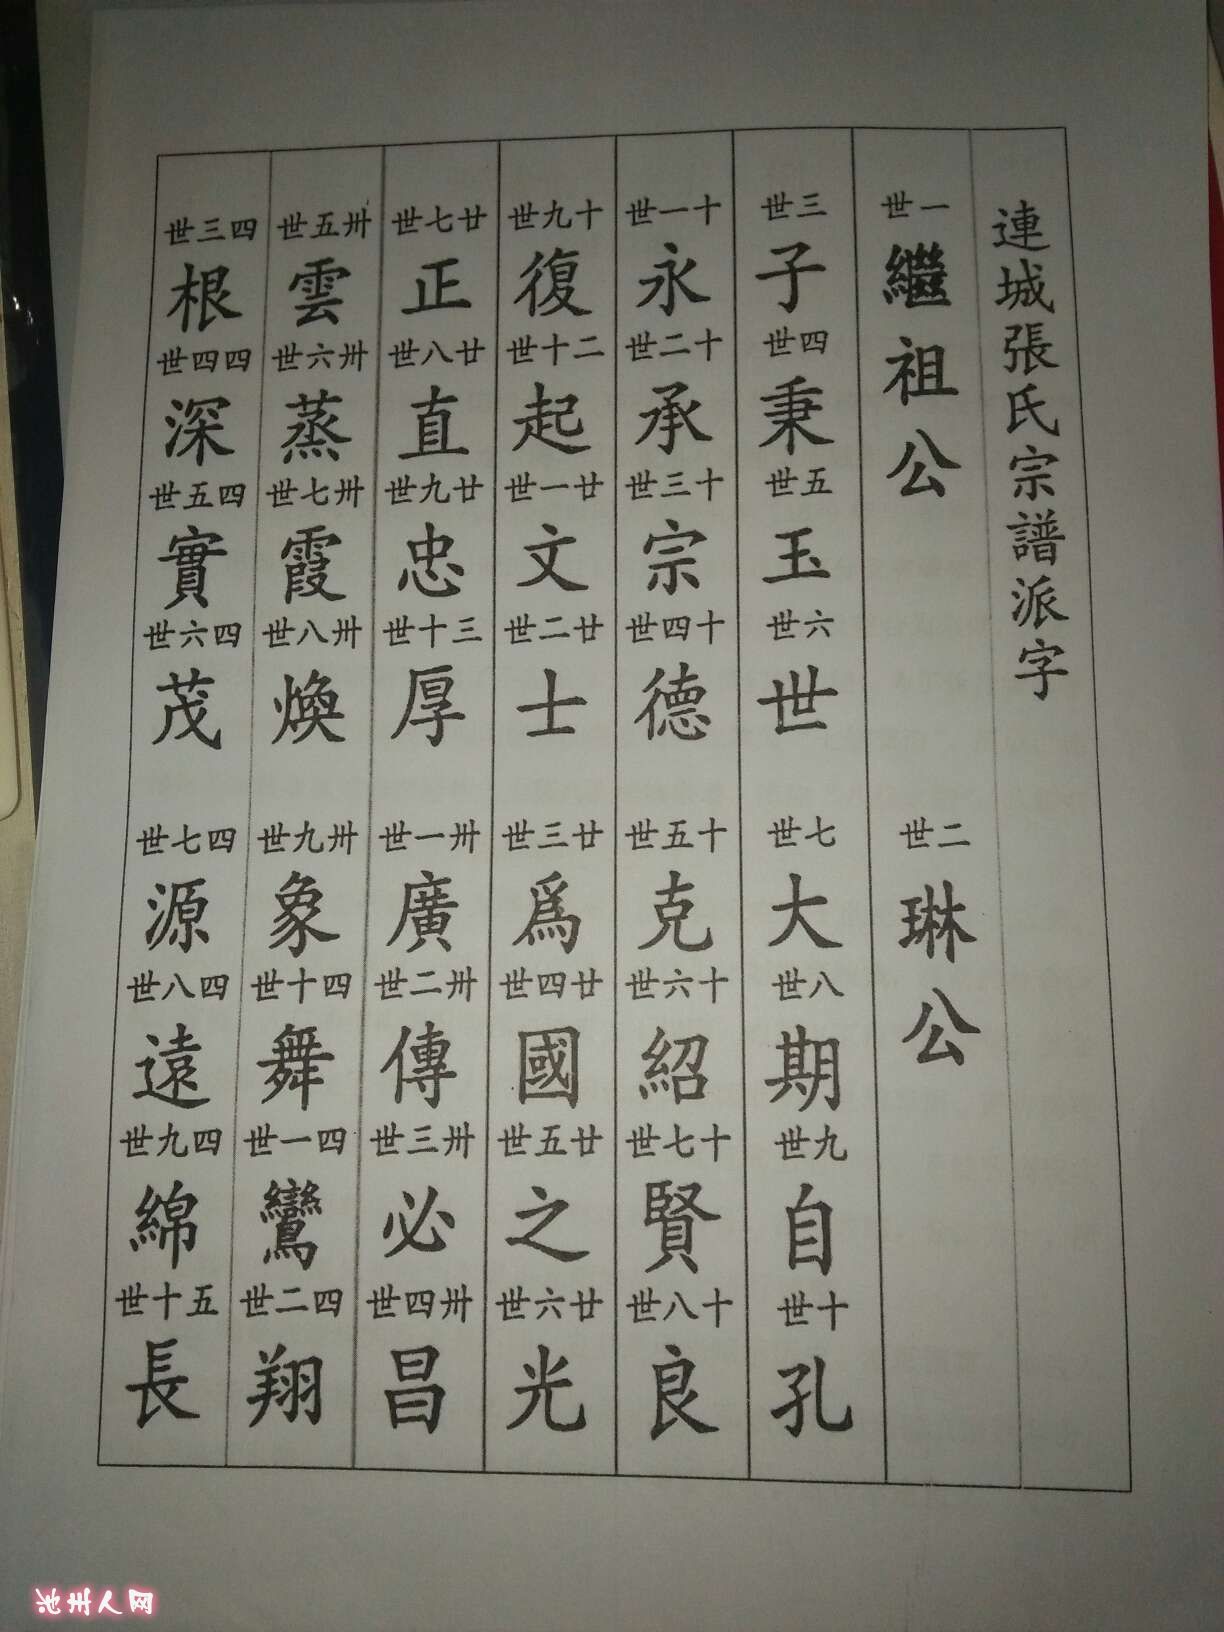 連城張氏宗譜派字
一世
繼祖公
二世
琳公
三世
子
四世
秉
五世
玉
六世
世
七世
大
八世
期
九世
自
十世
孔
十一世
永
十二世
承
十三世
宗
十四世
德
十五世
克
十六世
紹
十七世
賢
十八世
良
十九世
復
二十世
起
廿一世
文
廿二世
士
廿三世
爲
廿四世
國
廿五世
之
廿六世
光
廿七世
正
廿八世
直
廿九世
忠
三十世
厚
卅一世
廣
卅二世
傳
卅三世
必
卅四世
昌
卅五世
雲
卅六世
蒸
卅七世
霞
卅八世
煥
卅九世
象
四十世
舞
四一世
鸞
四二世
翔
四三世
根
四四世
深
四五世
實
四六世
茂
四七世
源
四八世
遠
四九世
綿
五十世
長
池州人网